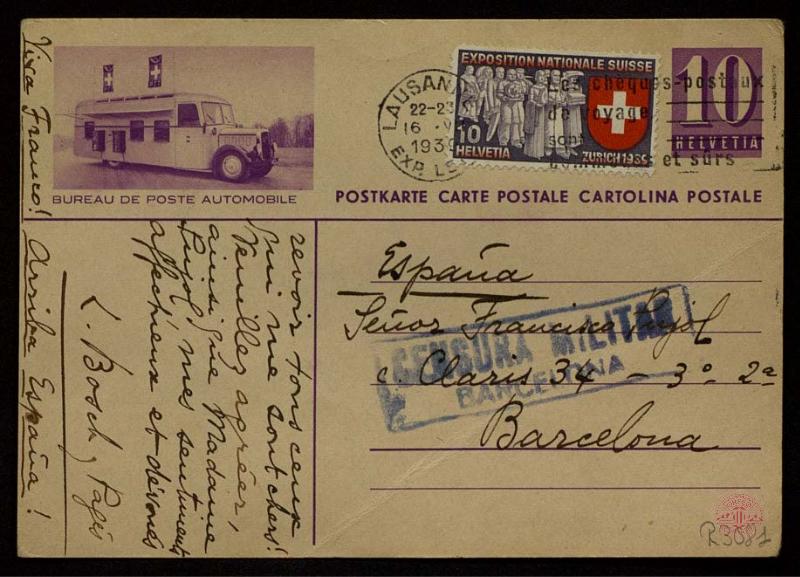 BUREAU DE POSTE AUTOMOBILE
LAUSANNE
22-23
16
1939
EXP. LE
EXPOSITION NATIONALE SUISSE
10
HELVETIA
ZURICH 1939
Les chèques-postaux
de voyage
sont
et sûrs
10
HELVETIA
POSTKARTE CARTE POSTALE CARTOLINA POSTALE
revoir tous ceux
qui me sont chers!
Veuillez agréer,
ainsi que Madame
Pujol, mes sentiments
affectueux et dévoués
L. Bosch y Pagés
Viva Franco! Arriba España!
España
Señor Francisco Pujol
c. Claris 34 - 3º 2ª
Barcelona
CENSURA MILITAR
BARCELONA
R3081